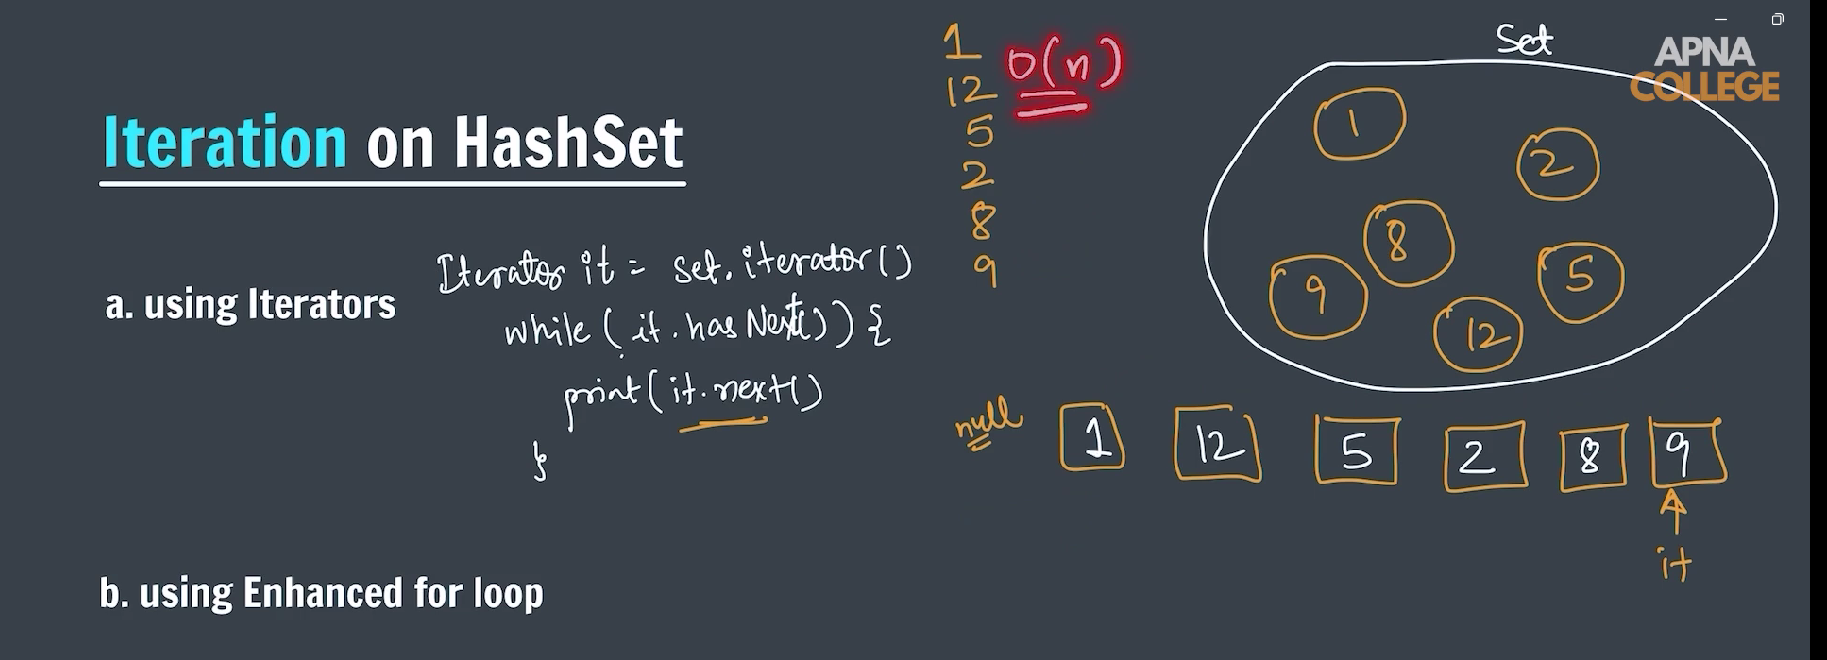 Iteration on HashSet
a. using Iterators
Iterator it = set.iterator()
while (it.hasNext()) {
print(it.next()
}
b. using Enhanced for loop
1
12
5
2
8
9
O(n)
Set
APNA
COLLEGE
1
2
8
9
5
12
null 1 12 5 2 8 9
it